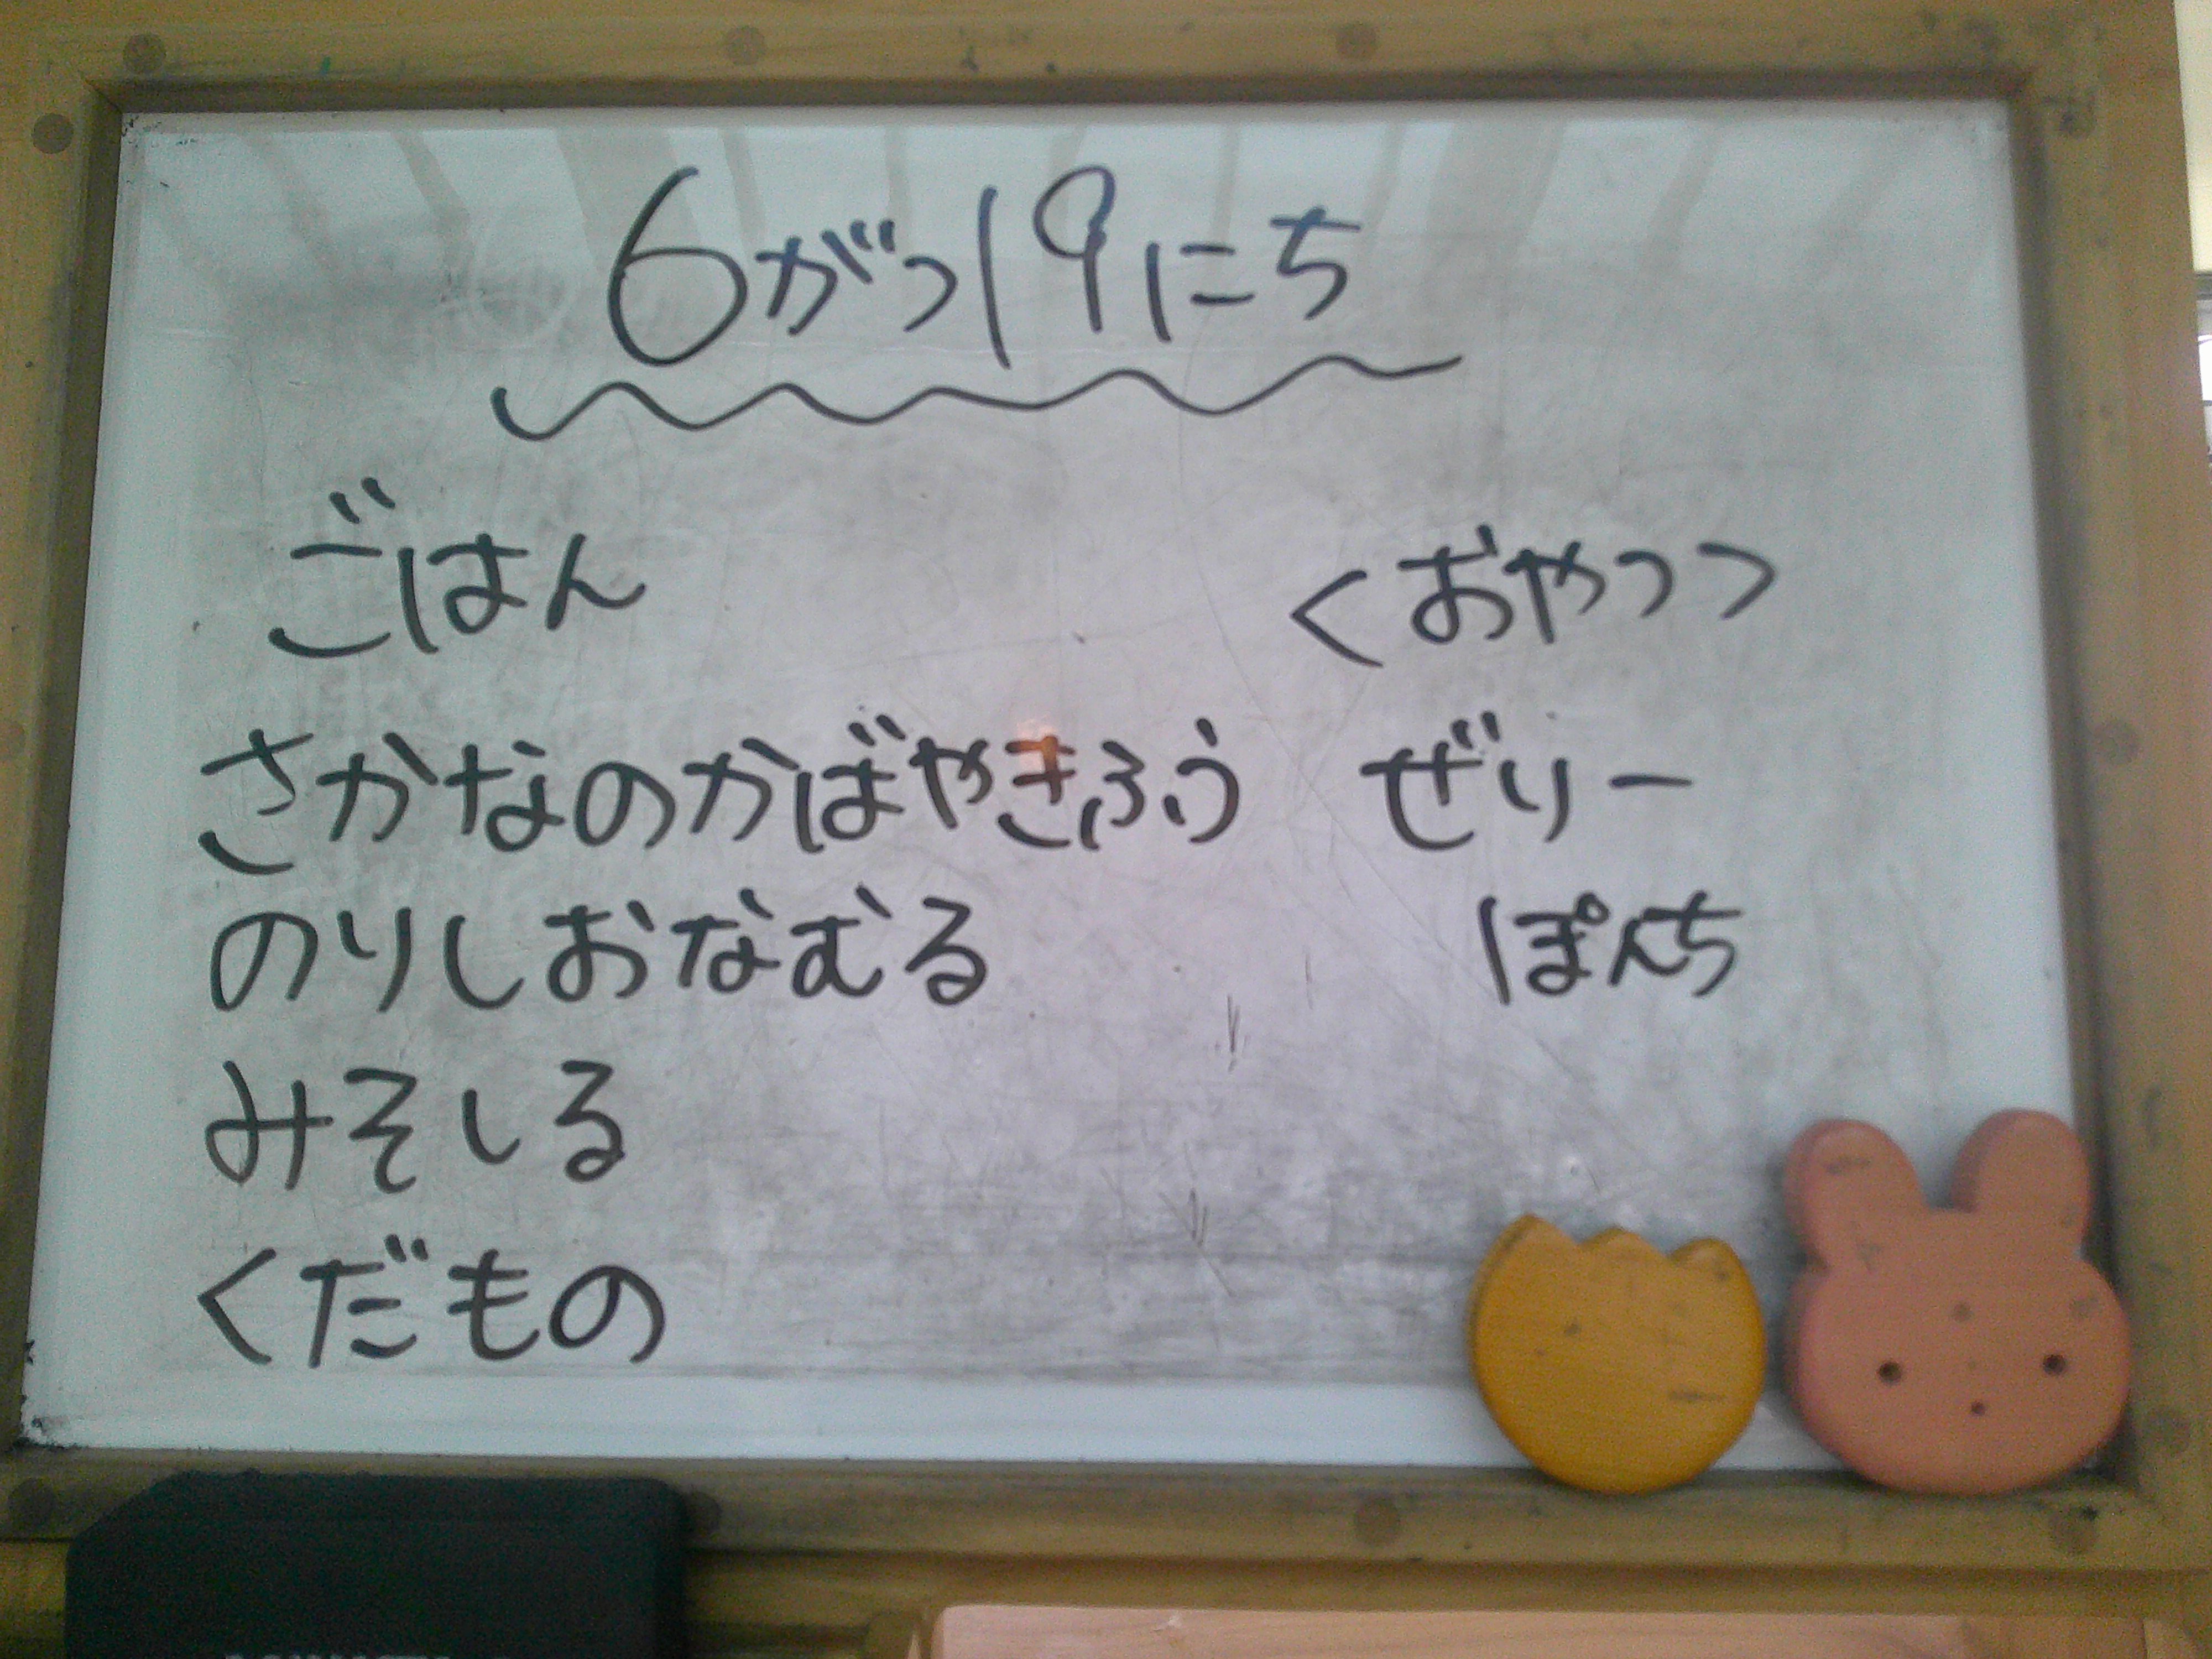 6がつ19にち
ごはん
さかなのかばやきふう
のりしおなむる
みそしる
くだもの
<おやつ>
ぜりー
ぽんち